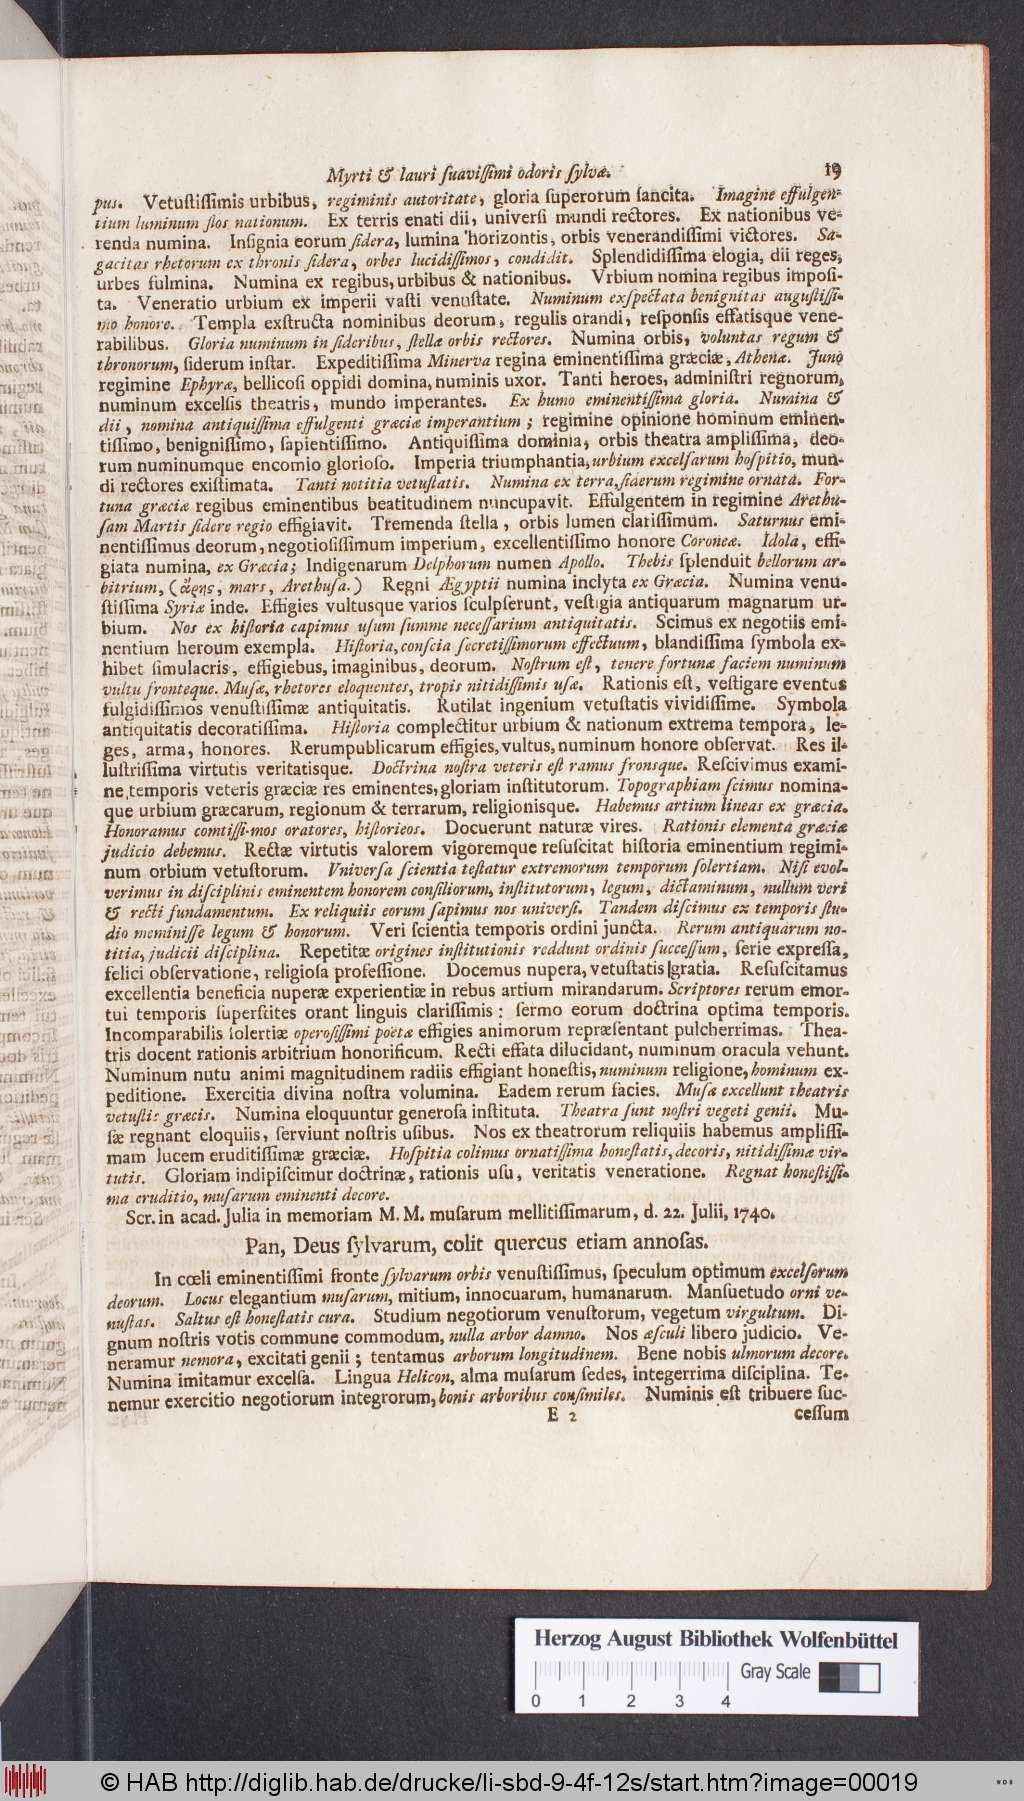 Myrti & lauri ſuaviſſimi odoris ſylvæ. 19
pus. Vetuſtiſſimis urbibus, regiminis autoritate, gloria ſuperorum ſancita. Imagine effulgen-
tium luminum flos nationum. Ex terris enati dii, univerſi mundi rectores. Ex nationibus ve-
renda numina. Inſignia eorum ſidera, lumina horizontis, orbis venerandiſſimi victores. Sa-
gacitas rhetorum ex thronis ſidera, orbes lucidiſſimos, condidit. Splendidiſſima elogia, dii reges,
urbes fulmina. Numina ex regibus, urbibus & nationibus. Vrbium nomina regibus impoſi-
ta. Veneratio urbium ex imperii vaſti venuſtate. Numinum exſpectata benignitas auguſtiſſi-
mo honore. Templa exſtructa nominibus deorum, regulis orandi, reſponſis effatisque vene-
rabilibus. Gloria numinum in ſideribus, ſtellæ orbis rectores. Numina orbis, voluntas regum &
thronorum, ſiderum inſtar. Expeditiſſima Minerva regina eminentiſſima græciæ, Athenæ. Juno
regimine Ephyræ, bellicoſi oppidi domina, numinis uxor. Tanti heroes, adminiſtri regnorum,
numinum excelſis theatris, mundo imperantes. Ex humo eminentiſſima gloria. Numina &
dii, nomina antiquiſſima effulgenti græciæ imperantium; regimine opinione hominum eminen-
tiſſimo, benigniſſimo, ſapientiſſimo. Antiquiſſima dominia, orbis theatra ampliſſima, deo-
rum numinumque encomio glorioſo. Imperia triumphantia, urbium excelſarum hoſpitio, mun-
di rectores exiſtimata. Tanti notitia vetuſtatis. Numina ex terra, ſiderum regimine ornata. For-
tuna græciæ regibus eminentibus beatitudinem nuncupavit. Effulgentem in regimine Arethu-
ſam Martis ſidere regio effigiavit. Tremenda ſtella, orbis lumen clariſſimum. Saturnus emi-
nentiſſimus deorum, negotioſiſſimum imperium, excellentiſſimo honore Coroneæ. Idola, effi-
giata numina, ex Græcia; Indigenarum Delphorum numen Apollo. Thebis ſplenduit bellorum ar-
bitrium, (ἄρης, mars, Arethuſa.) Regni Ægyptii numina inclyta ex Græcia. Numina venu-
ſtiſſima Syriæ inde. Effigies vultusque varios ſculpſerunt, veſtigia antiquarum magnarum ur-
bium. Nos ex hiſtoria capimus uſum ſumme neceſſarium antiquitatis. Scimus ex negotiis emi-
nentium heroum exempla. Hiſtoria, conſcia ſecretiſſimorum effectuum, blandiſſima ſymbola ex-
hibet ſimulacris, effigiebus, imaginibus, deorum. Noſtrum eſt, tenere fortunæ faciem numinum
vultu fronteque. Muſæ, rhetores eloquentes, tropis nitidiſſimis uſæ. Rationis eſt, veſtigare eventus
fulgidiſſimos venuſtiſſimæ antiquitatis. Rutilat ingenium vetuſtatis vividiſſime. Symbola
antiquitatis decoratiſſima. Hiſtoria complectitur urbium & nationum extrema tempora, le-
ges, arma, honores. Rerumpublicarum effigies, vultus, numinum honore obſervat. Res il-
luſtriſſima virtutis veritatisque. Doctrina noſtra veteris eſt ramus fronsque. Reſcivimus exami-
ne, temporis veteris græciæ res eminentes, gloriam inſtitutorum. Topographiam ſcimus nomina-
que urbium græcarum, regionum & terrarum, religionisque. Habemus artium lineas ex græcia.
Honoramus comtiſſi-mos oratores, hiſtorieos. Docuerunt naturæ vires. Rationis elementa græciæ
judicio debemus. Rectæ virtutis valorem vigoremque reſuſcitat hiſtoria eminentium regimi-
num orbium vetuſtorum. Univerſa ſcientia teſtatur extremorum temporum ſolertiam. Niſi evol-
verimus in diſciplinis eminentem honorem conſiliorum, inſtitutorum, legum, dictaminum, nullum veri
& recti fundamentum. Ex reliquiis eorum ſapimus nos univerſi. Tandem diſcimus ex temporis ſtu-
dio meminiſſe legum & honorum. Veri ſcientia temporis ordini juncta. Rerum antiquarum no-
titia, judicii diſciplina. Repetitæ origines inſtitutionis reddunt ordinis ſucceſſum, ſerie expreſſa,
felici obſervatione, religioſa profeſſione. Docemus nupera, vetuſtatis gratia. Reſuſcitamus
excellentia beneficia nuperæ experientiæ in rebus artium mirandarum. Scriptores rerum emor-
tui temporis ſuperſtites orant linguis clariſſimis: ſermo eorum doctrina optima temporis.
Incomparabilis ſolertiæ operoſiſſimi poëtæ effigies animorum repræſentant pulcherrimas. Thea-
tris docent rationis arbitrium honorificum. Recti effata dilucidant, numinum oracula vehunt.
Numinum nutu animi magnitudinem radiis effigiant honeſtis, numinum religione, hominum ex-
peditione. Exercitia divina noſtra volumina. Eadem rerum facies. Muſæ excellunt theatris
vetuſtis græcis. Numina eloquuntur generoſa inſtituta. Theatra ſunt noſtri vegeti genii. Mu-
ſæ regnant eloquiis, ſerviunt noſtris uſibus. Nos ex theatrorum reliquiis habemus ampliſſi-
mam lucem eruditiſſimæ græciæ. Hoſpitia colimus ornatiſſima honeſtatis, decoris, nitidiſſimæ vir-
tutis. Gloriam indipiſcimur doctrinæ, rationis uſu, veritatis veneratione. Regnat honeſtiſſi-
ma eruditio, muſarum eminenti decore.
Scr. in acad. Julia in memoriam M. M. muſarum mellitiſſimarum, d. 22. Julii, 1740.
Pan, Deus ſylvarum, colit quercus etiam annoſas.
In cœli eminentiſſimi fronte ſylvarum orbis venuſtiſſimus, ſpeculum optimum excelſorum
deorum. Locus elegantium muſarum, mitium, innocuarum, humanarum. Manſuetudo orni ve-
nuſtas. Saltus eſt honeſtatis cura. Studium negotiorum venuſtorum, vegetum virgultum. Di-
gnum noſtris votis commune commodum, nulla arbor damno. Nos æſculi libero judicio. Ve-
neramur nemora, excitati genii; tentamus arborum longitudinem. Bene nobis ulmorum decore.
Numina imitamur excelſa. Lingua Helicon, alma muſarum ſedes, integerrima diſciplina. Te-
nemur exercitio negotiorum integrorum, bonis arboribus conſimiles. Numinis eſt tribuere ſuc-
E 2 ceſſum
Herzog August Bibliothek Wolfenbüttel
Gray Scale
0 1 2 3 4
© HAB http://diglib.hab.de/drucke/li-sbd-9-4f-12s/start.htm?image=00019